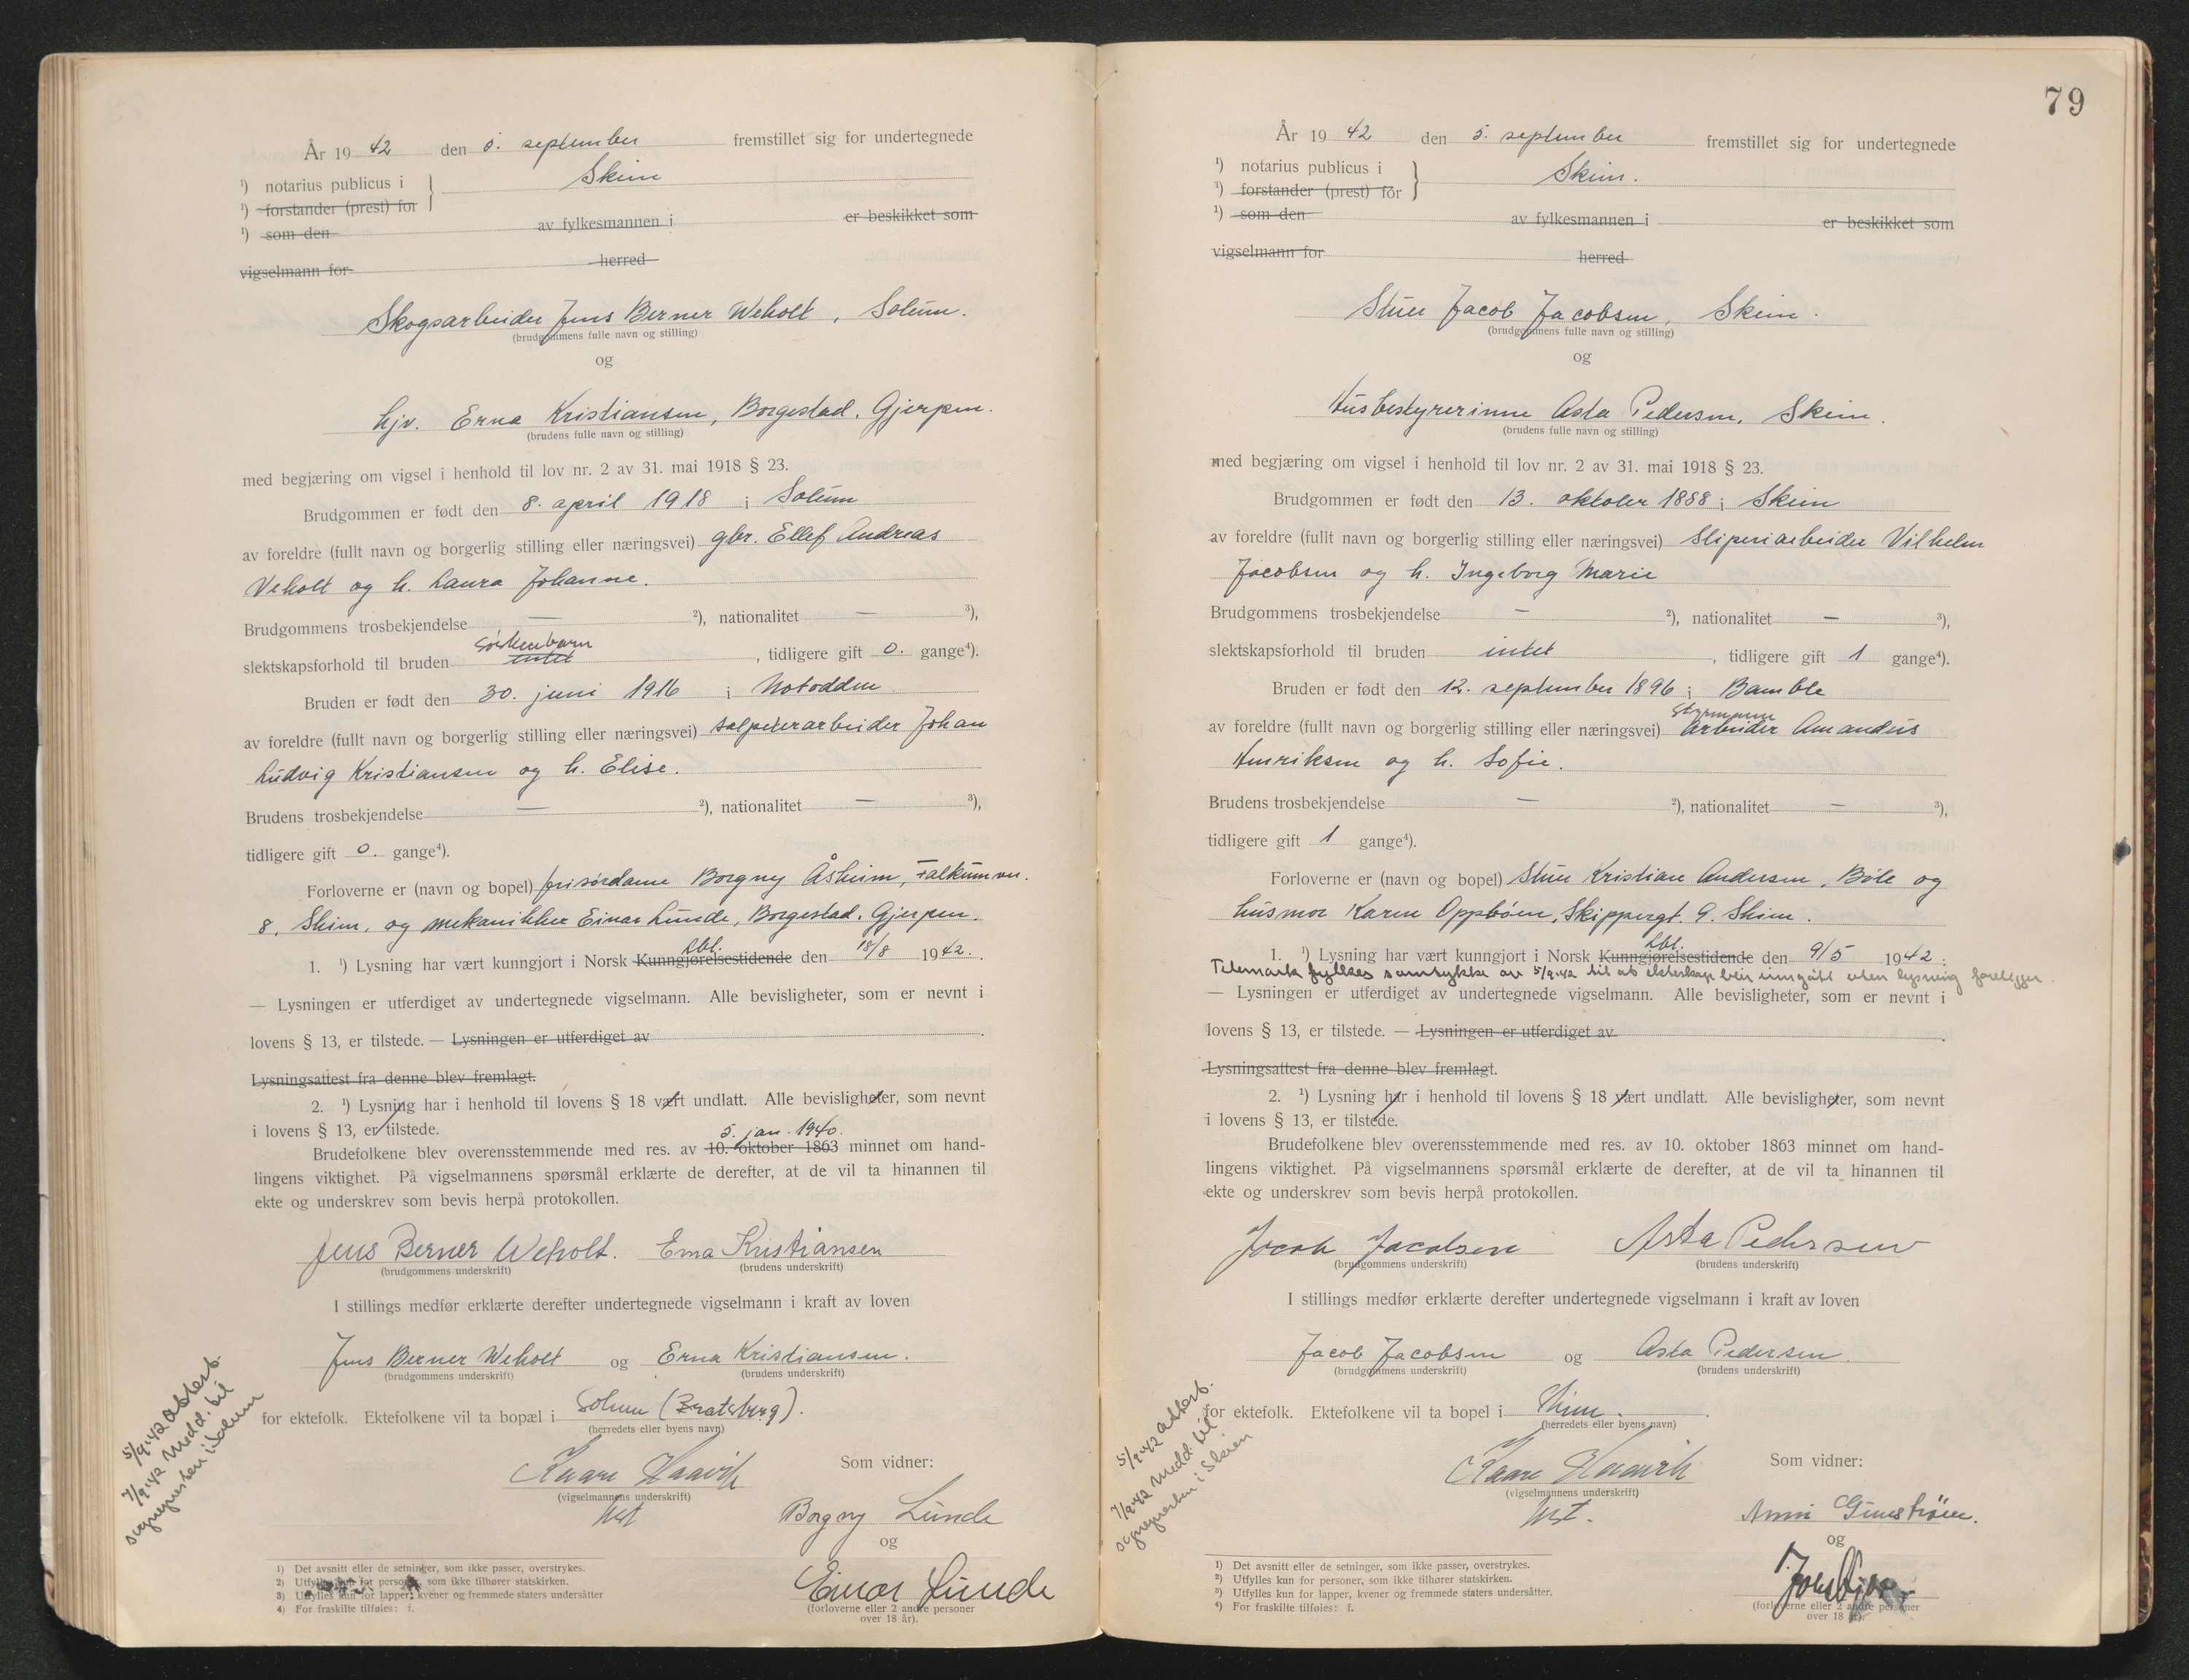 År 19 42 den 5. september fremstillet sig for undertegnede
¹) notarius publicus i
¹) forstander (prest) for } Skien
¹) som den av fylkesmannen i er beskikket som
vigselmann for herred
Skogsarbeider Jens Berner Weholt, Solum.
(brudgommens fulle navn og stilling)
og
hjv. Erna Kristiansen, Borgestad, Gjerpen.
(brudens fulle navn og stilling)
med begjæring om vigsel i henhold til lov nr. 2 av 31. mai 1918 § 23.
Brudgommen er født den 8. april 1918 i Solum
av foreldre (fullt navn og borgerlig stilling eller næringsvei) gbr. Ellef Andreas
Veholt og h. Laura Johanne.
Brudgommens trosbekjendelse — ²), nationalitet — ³),
søskenbarn
slektskapsforhold til bruden intet , tidligere gift 0. gange⁴).
Bruden er født den 30. juni 1916 i Notodden
av foreldre (fullt navn og borgerlig stilling eller næringsvei) salpeterarbeider Johan
Ludvig Kristiansen og h. Elise.
Brudens trosbekjendelse — ²), nationalitet — ³),
tidligere gift 0. gange⁴).
Forloverne er (navn og bopel) frisørdame Borgny Åsheim, Falkumvn.
8, Skien, og mekanikker Einar Lunde, Borgestad, Gjerpen.
lbl.
1. ¹) Lysning har vært kunngjort i Norsk Kunngjørelsestidende den 18/8 1942.
— Lysningen er utferdiget av undertegnede vigselmann. Alle bevisligheter, som er nevnt i
lovens § 13, er tilstede. — Lysningen er utferdiget av .
Lysningsattest fra denne blev fremlagt.
2. ¹) Lysning har i henhold til lovens § 18 vært undlatt. Alle bevisligheter, som nevnt
i lovens § 13, er tilstede.
5. jan. 1940.
Brudefolkene blev overensstemmende med res. av 10. oktober 1863 minnet om hand-
lingens viktighet. På vigselmannens spørsmål erklærte de derefter, at de vil ta hinannen til
ekte og underskrev som bevis herpå protokollen.
Jens Berner Weholt. Erna Kristiansen
(brudgommens underskrift) (brudens underskrift)
I stillings medfør erklærte derefter undertegnede vigselmann i kraft av loven
Jens Berner Weholt og Erna Kristiansen.
(brudgommens underskrift) (brudens underskrift)
for ektefolk. Ektefolkene vil ta bopæl i Solum (Bratsberg).
(herredets eller byens navn)
5/9-42 attest.
7/9-42 Medd. til
sognepresten i Solum
Kaare Haavik
(vigselmannens underskrift)
Som vidner:
Borgny Lunde
og
Einar Lunde
(forloverne eller 2 andre personer
over 18 år).
1) Det avsnitt eller de setninger, som ikke passer, overstrykes.
2) Utfylles kun for personer, som ikke tilhører statskirken.
3) Utfylles kun for lapper, kvener og fremmede staters undersåtter
4) For fraskilte tilføies: f.
79
År 19 42 den 5. september fremstillet sig for undertegnede
¹) notarius publicus i
¹) forstander (prest) for } Skien.
¹) som den av fylkesmannen i er beskikket som
vigselmann for herred
Stuer Jacob Jacobsen, Skien.
(brudgommens fulle navn og stilling)
og
Husbestyrerinne Asta Pedersen, Skien.
(brudens fulle navn og stilling)
med begjæring om vigsel i henhold til lov nr. 2 av 31. mai 1918 § 23.
Brudgommen er født den 13. oktober 1888 i Skien
av foreldre (fullt navn og borgerlig stilling eller næringsvei) Sliperiarbeider Vilhelm
Jacobsen og h. Ingeborg Marie
Brudgommens trosbekjendelse — ²), nationalitet — ³),
slektskapsforhold til bruden intet , tidligere gift 1 gange⁴).
Bruden er født den 12. september 1896 i Bamble
styrmann
av foreldre (fullt navn og borgerlig stilling eller næringsvei) arbeider Amandus
Henriksen og h. Sofie.
Brudens trosbekjendelse — ²), nationalitet — ³),
tidligere gift 1 gange⁴).
Forloverne er (navn og bopel) Stuer Kristian Andersen, Bøle og
husmor Karen Oppbøen, Skippergt. 9. Skien.
lbl.
1. ¹) Lysning har vært kunngjort i Norsk Kunngjørelsestidende den 9/5 1942.
Telemark fylkes samtykke av 5/9-42 til at ekteskap blir inngått uten lysning foreligger.
— Lysningen er utferdiget av undertegnede vigselmann. Alle bevisligheter, som er nevnt i
lovens § 13, er tilstede. — Lysningen er utferdiget av .
Lysningsattest fra denne blev fremlagt.
2. ¹) Lysning har i henhold til lovens § 18 vært undlatt. Alle bevisligheter, som nevnt
i lovens § 13, er tilstede.
Brudefolkene blev overensstemmende med res. av 10. oktober 1863 minnet om hand-
lingens viktighet. På vigselmannens spørsmål erklærte de derefter, at de vil ta hinannen til
ekte og underskrev som bevis herpå protokollen.
Jacob Jacobsen Asta Pedersen
(brudgommens underskrift) (brudens underskrift)
I stillings medfør erklærte derefter undertegnede vigselmann i kraft av loven
Jacob Jacobsen og Asta Pedersen.
(brudgommens underskrift) (brudens underskrift)
for ektefolk. Ektefolkene vil ta bopel i Skien.
(herredets eller byens navn)
5/9-42 attest.
7/9-42 Medd. til
sognepresten i Skien
Kaare Haavik
(vigselmannens underskrift)
Som vidner:
og
(forloverne eller 2 andre personer
over 18 år).
1) Det avsnitt eller de setninger, som ikke passer, overstrykes.
2) Utfylles kun for personer, som ikke tilhører statskirken.
3) Utfylles kun for lapper, kvener og fremmede staters undersåtter.
4) For fraskilte tilføies: f.